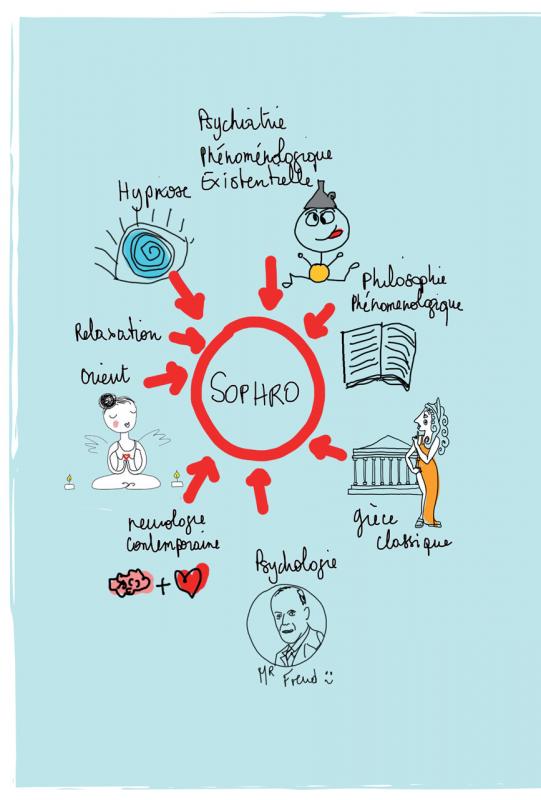 Psychiatrie
Phénoménologique
Existentielle
Hypnose
Philosophie
Phénomenologique
Relaxation
Orient
SOPHRO
Grèce
classique
neurologie
contemporaine
+
Psychologie
MR Freud :)